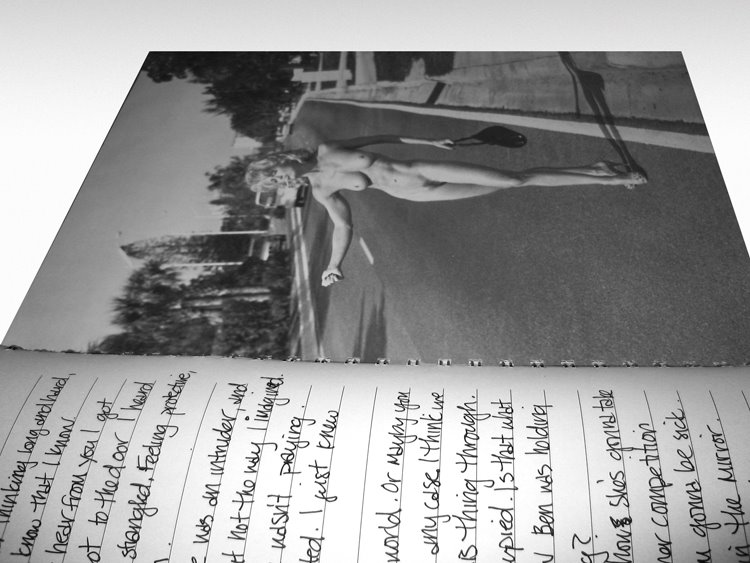 thinking long and hard,
know that I know
hear from you I got
to the door I heard
strangled. Feeling protective,
was an intruder, and
not the way I imagined.
wasn't
I just knew
world. Or maybe you
my case, I think we
thing through.
Is that what
Ben was holding
she's gonna take
her competition
gonna be sick.
in the mirror.